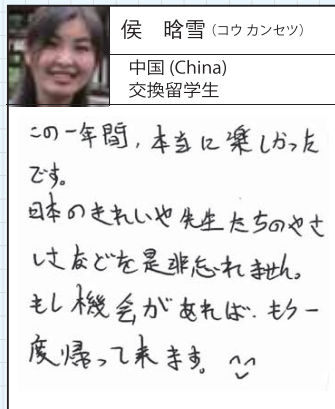 侯　晗雪（コウ カンセツ）
中国 (China)
交換留学生
この一年間，本当に楽しかった
です。
日本のきれいや先生たちのやさ
しさなどを是非忘れません。
もし機会があれば．もう一
度帰って来ます。^^